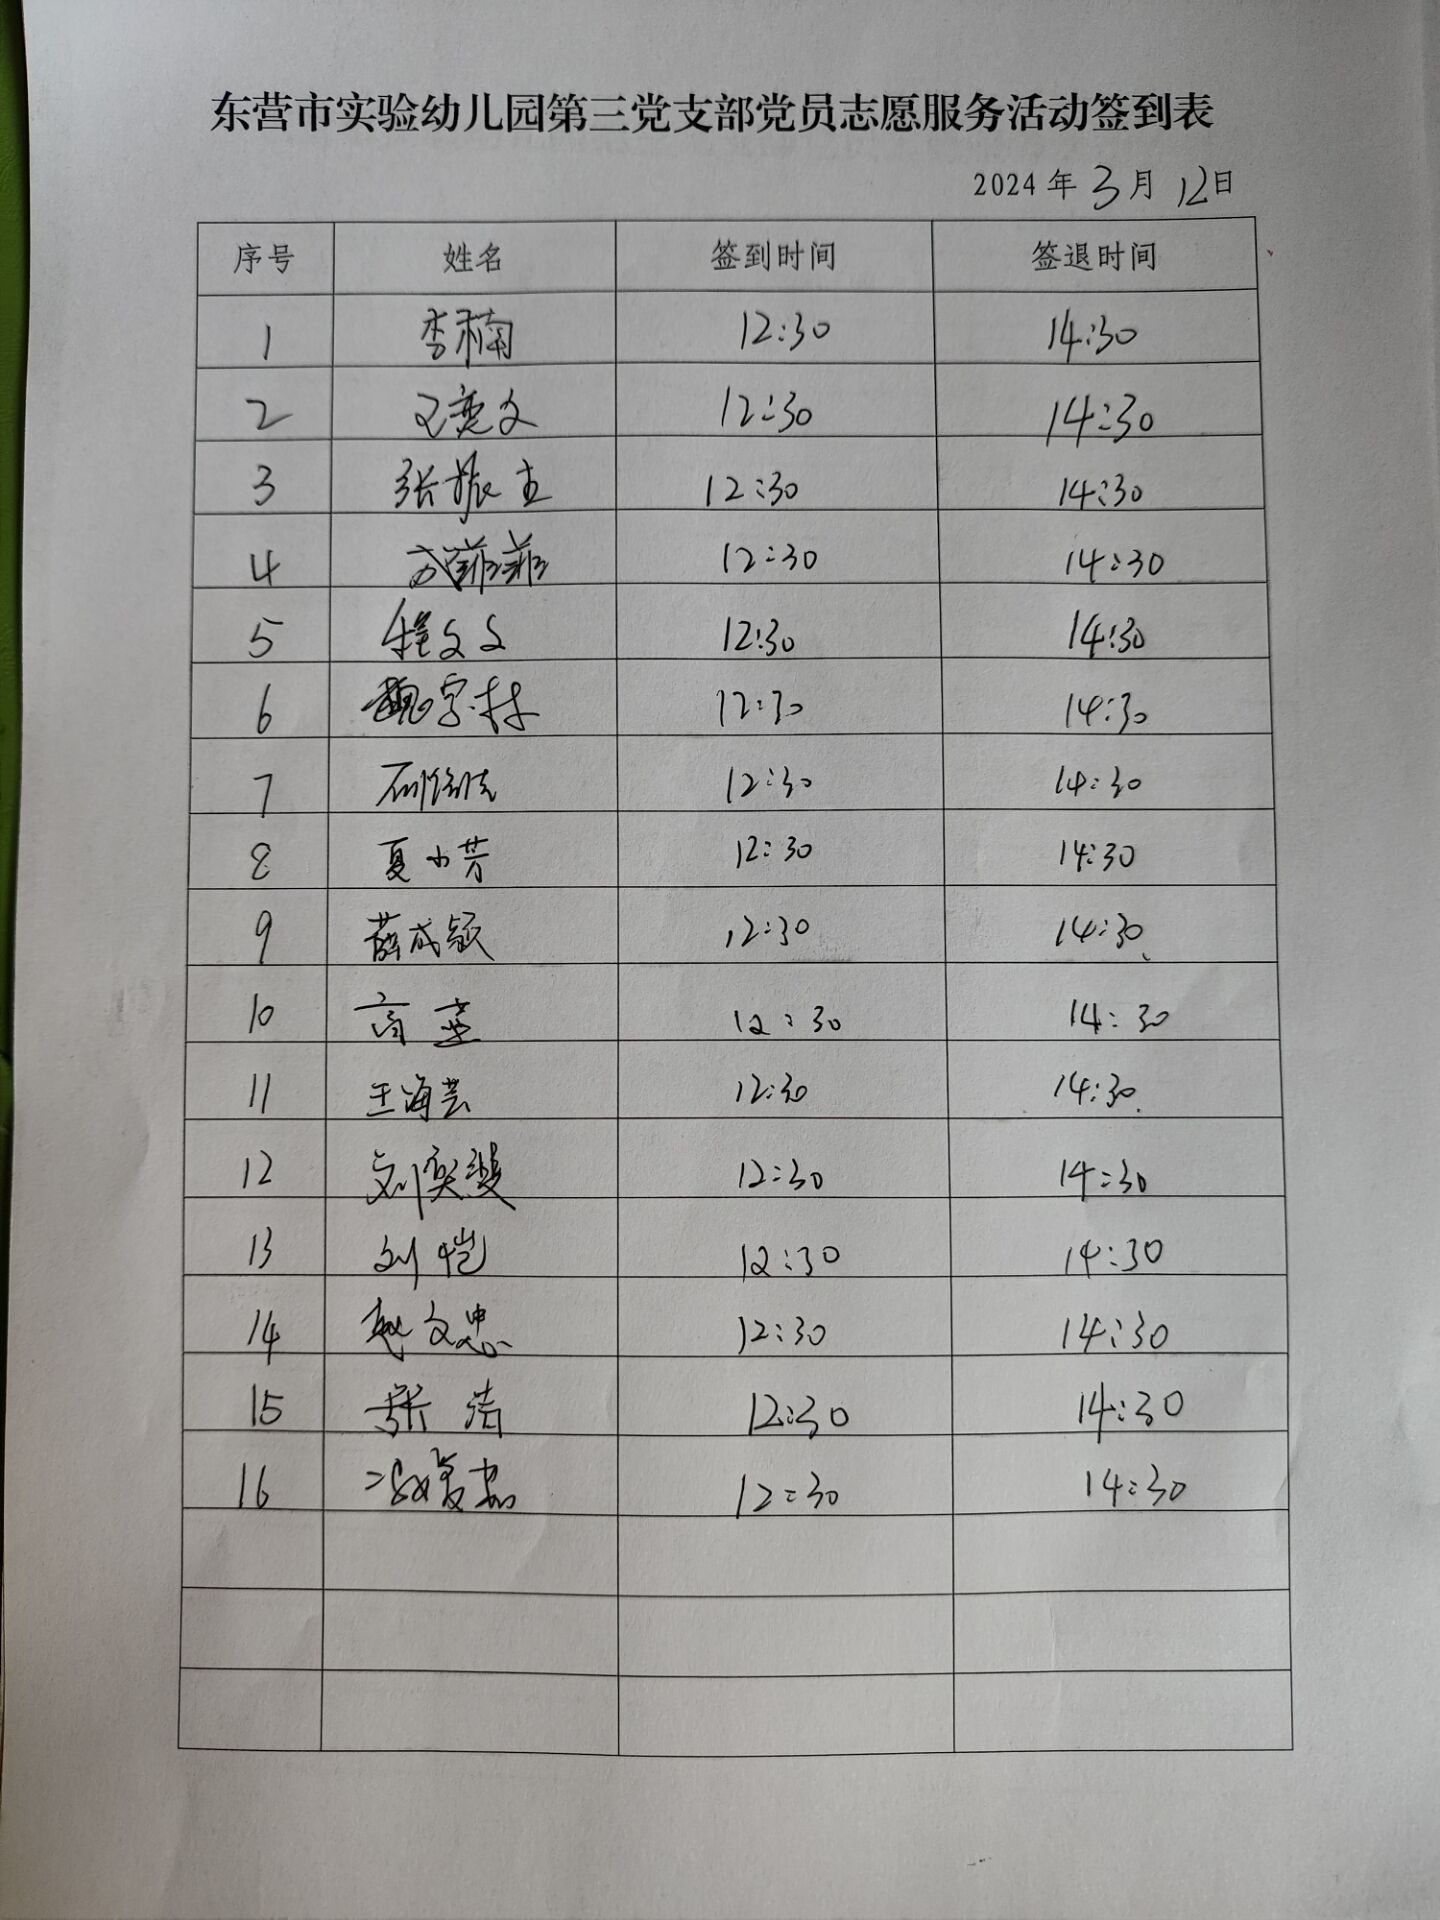 东营市实验幼儿园第三党支部党员志愿服务活动签到表
2024 年 3 月 12日
序号 姓名 签到时间 签退时间
1 李楠 12:30 14:30
2 王奕文 12:30 14:30
3 张振 12:30 14:30
4 菲菲 12:30 14:30
5 程文文 12:30 14:30
6 魏字林 12:30 14:30
7 12:30 14:30
8 夏小芳 12:30 14:30
9 薛成颖 12:30 14:30
10 高 12:30 14:30
11 王海芸 12:30 14:30
12 刘奕 12:30 14:30
13 刘恺 12:30 14:30
14 赵文忠 12:30 14:30
15 张洁 12:30 14:30
16 12:30 14:30